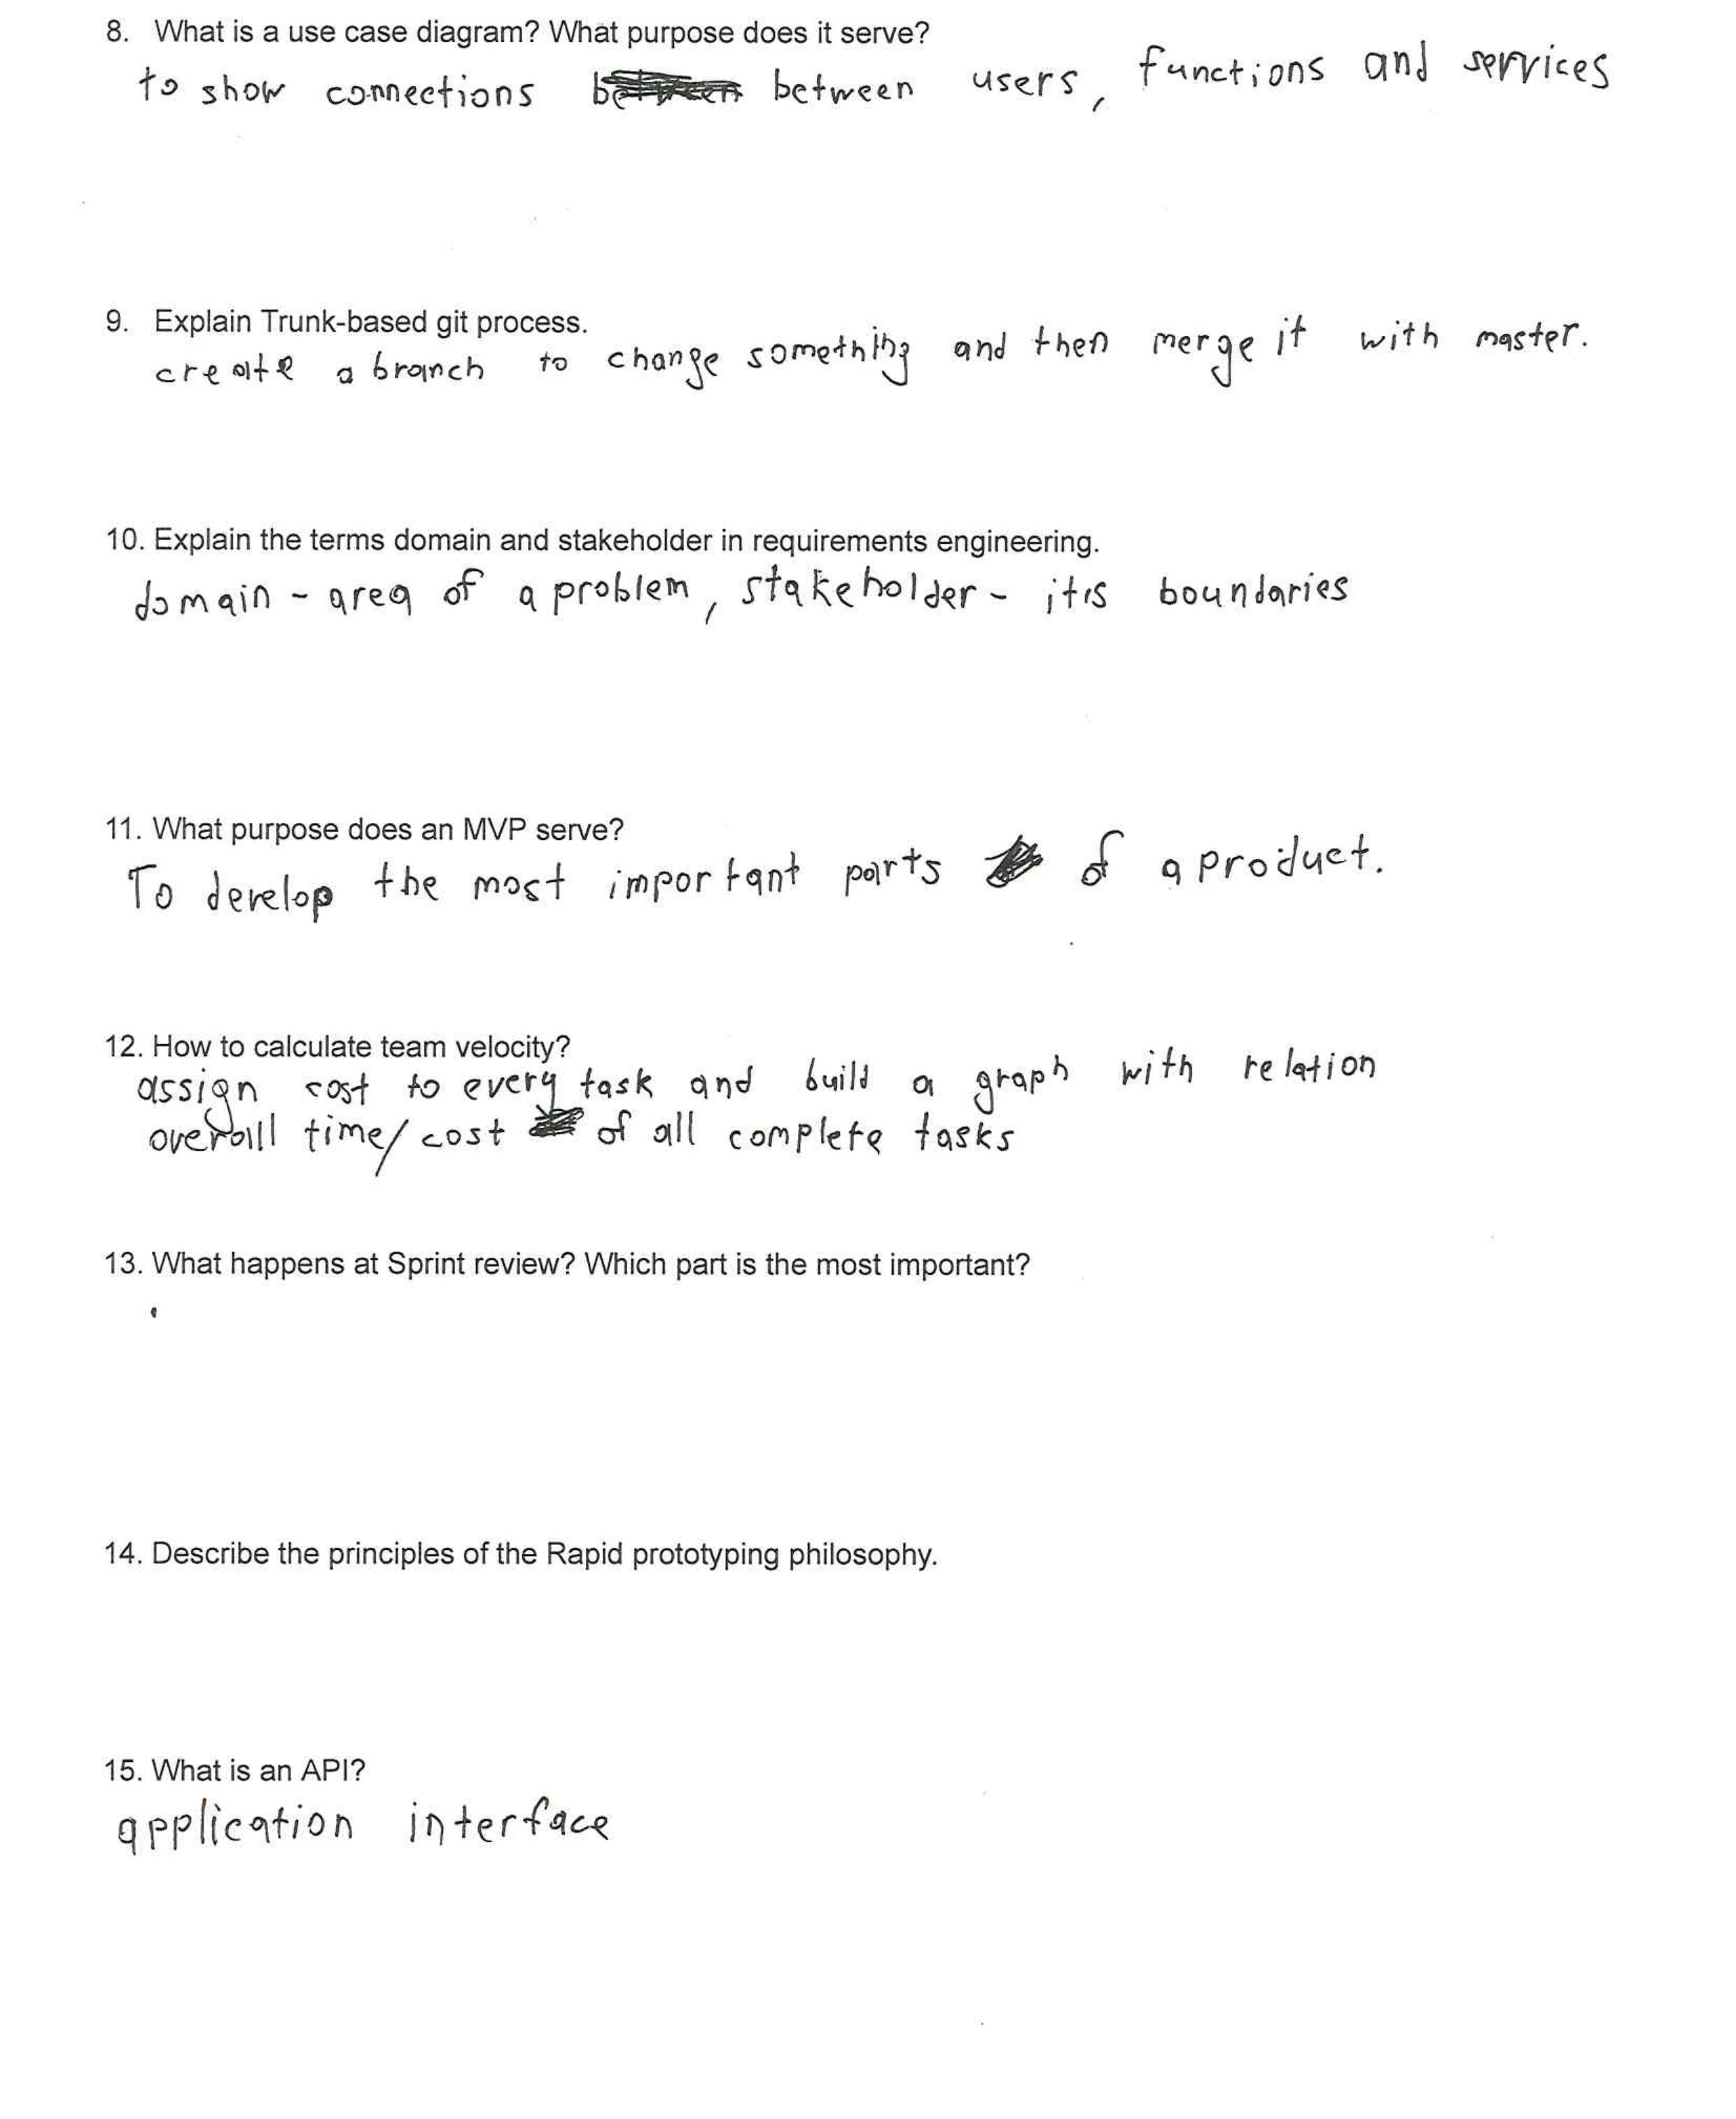 8. What is a use case diagram? What purpose does it serve?
to show connections between users, functions and services
9. Explain Trunk-based git process.
create a branch to change something and then merge it with master.
10. Explain the terms domain and stakeholder in requirements engineering.
domain - area of a problem, stakeholder - it's boundaries
11. What purpose does an MVP serve?
To develop the most important parts of a product.
12. How to calculate team velocity?
assign cost to every task and build a graph with relation
overall time/cost of all complete tasks
13. What happens at Sprint review? Which part is the most important?
14. Describe the principles of the Rapid prototyping philosophy.
15. What is an API?
application interface